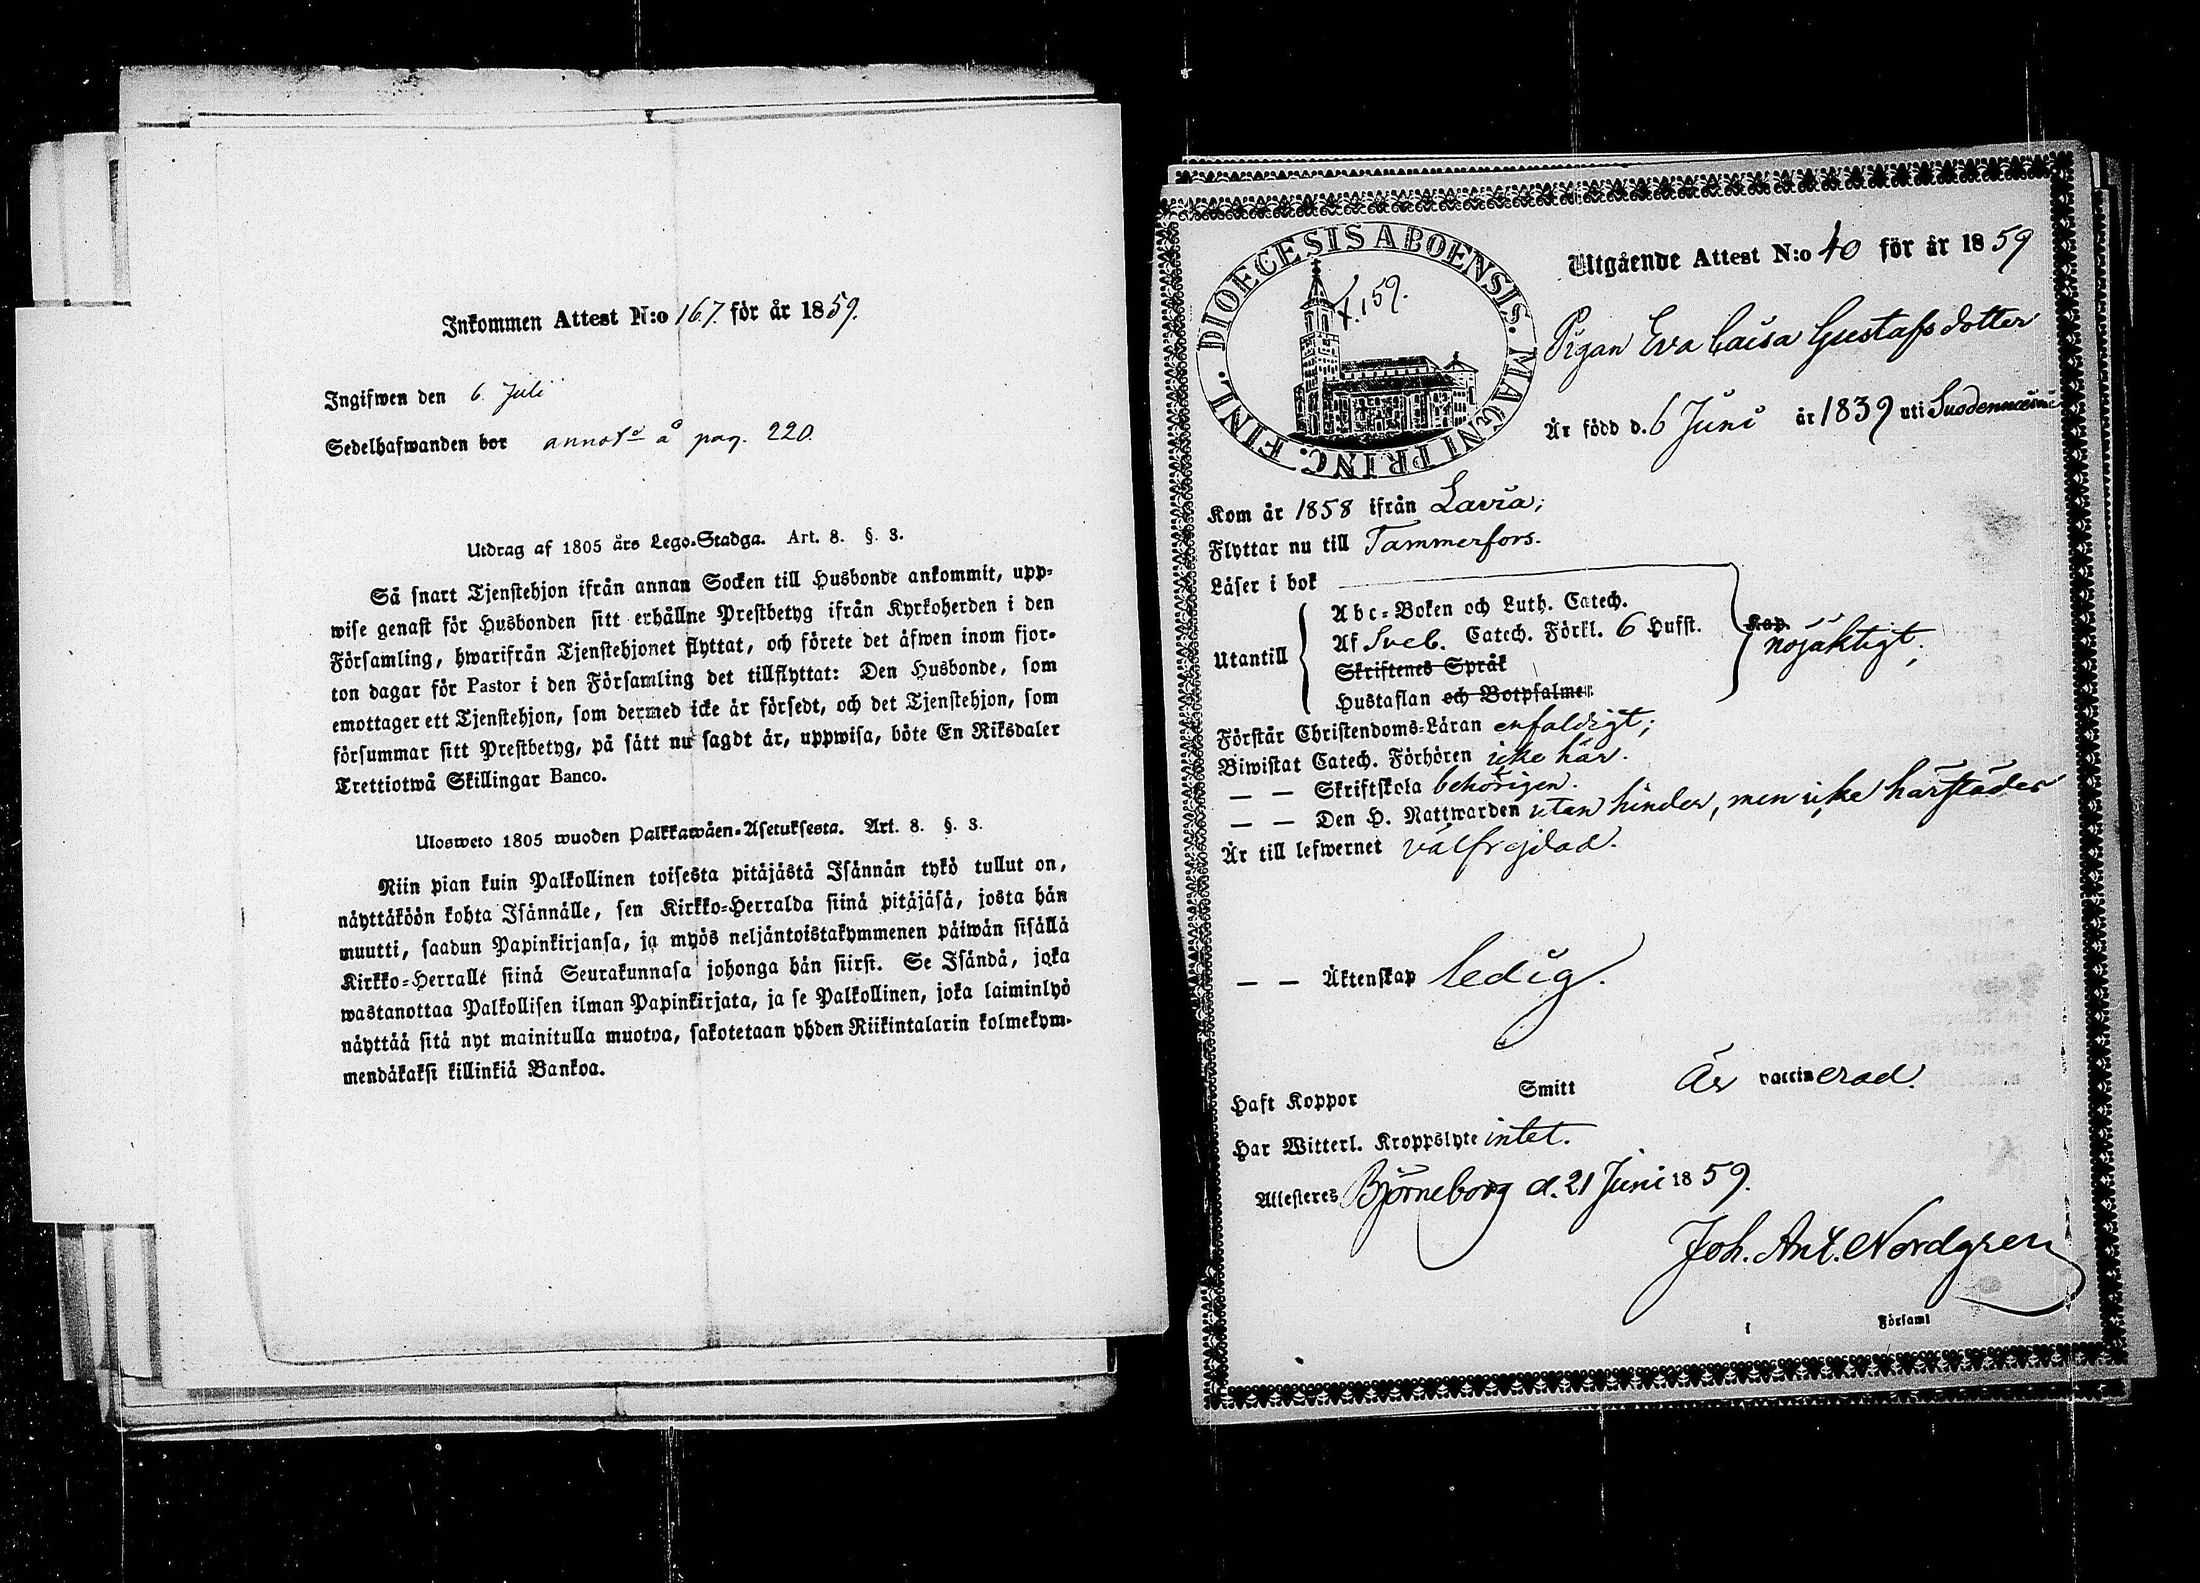 Inkommen Attest N:o 167. för år 1859.
Ingifwen den 6. Juli
Sedelhafwanden bor å pag. 220.
Utdrag af 1805 års Lego-Stadga. Art. 8. §. 3.
Så snart Tjenstehjon ifrån annan Socken till Husbonde ankommit, upp-
wise genast för Husbonden sitt erhållne Prestbetyg ifrån Kyrkoherden i den
Församling, hwarifrån Tjenstehjonet flyttat, och förete det äfwen inom fjor-
ton dagar för Pastor i den Församling det tillflyttat: Den Husbonde, som
emottager ett Tjenstehjon, som dermed icke är försedt, och det Tjenstehjon, som
försummar sitt Prestbetyg, på sätt nu sagdt är, uppwisa, böte En Riksdaler
Trettiotwå Skillingar Banco.
Ulosweto 1805 wuoden Palkkawäen-Asetuksesta. Art. 8. §. 3.
Niin pian kuin Palkollinen toisesta pitäjästä Isännän tykö tullut on,
näyttäköön kohta Isännälle, sen Kirkko-Herralda siinä pitäjäsä, josta hän
muutti, saadun Papinkirjansa, ja myös neljäntoistakymmenen päiwän sisällä
Kirkko-Herralle siinä Seurakunnasa johonga hän siirst. Se Isändä, joka
wastanottaa Palkollisen ilman Papinkirjata, ja se Palkollinen, joka laiminlyö
näyttää sitä nyt mainitulla muotoa, sakotetaan yhden Riikintalarin kolmekym-
mendäkaksi killinkiä Bankoa.
DIOECESIS ABOENSIS. MAGNI PRINC. FINL.
Utgående Attest N:o 40 för år 1859
Pigan Eva Caisa Gustafsdotter
Är född d. 6 Juni år 1839 uti Suodenniemi
Kom år 1858 ifrån Lavia;
Flyttar nu till Tammerfors.
Läser i bok
Utantill
Abc-Boken och Luth. Catech.
Af Sveb. Catech. Förkl. 6 Hufst.
Skriftenes Språk
Hustaflan och Botpsalmer
Kap.
nöjaktigt;
Förstår Christendoms-Läran enfaldigt;
Biwistat Catech. Förhören icke här.
— — Skriftskola behörigen.
— — Den H. Nattwarden utan hinder, men icke härstädes
Är till lefwernet välfrejdad.
— — Äktenskap ledig.
Haft Koppor Smitt Är vaccinerad.
Har Witterl. Kroppslyte intet.
Attesteres Björneborg d. 21 Juni 1859.
Joh. Ant. Nordgren
i Församl